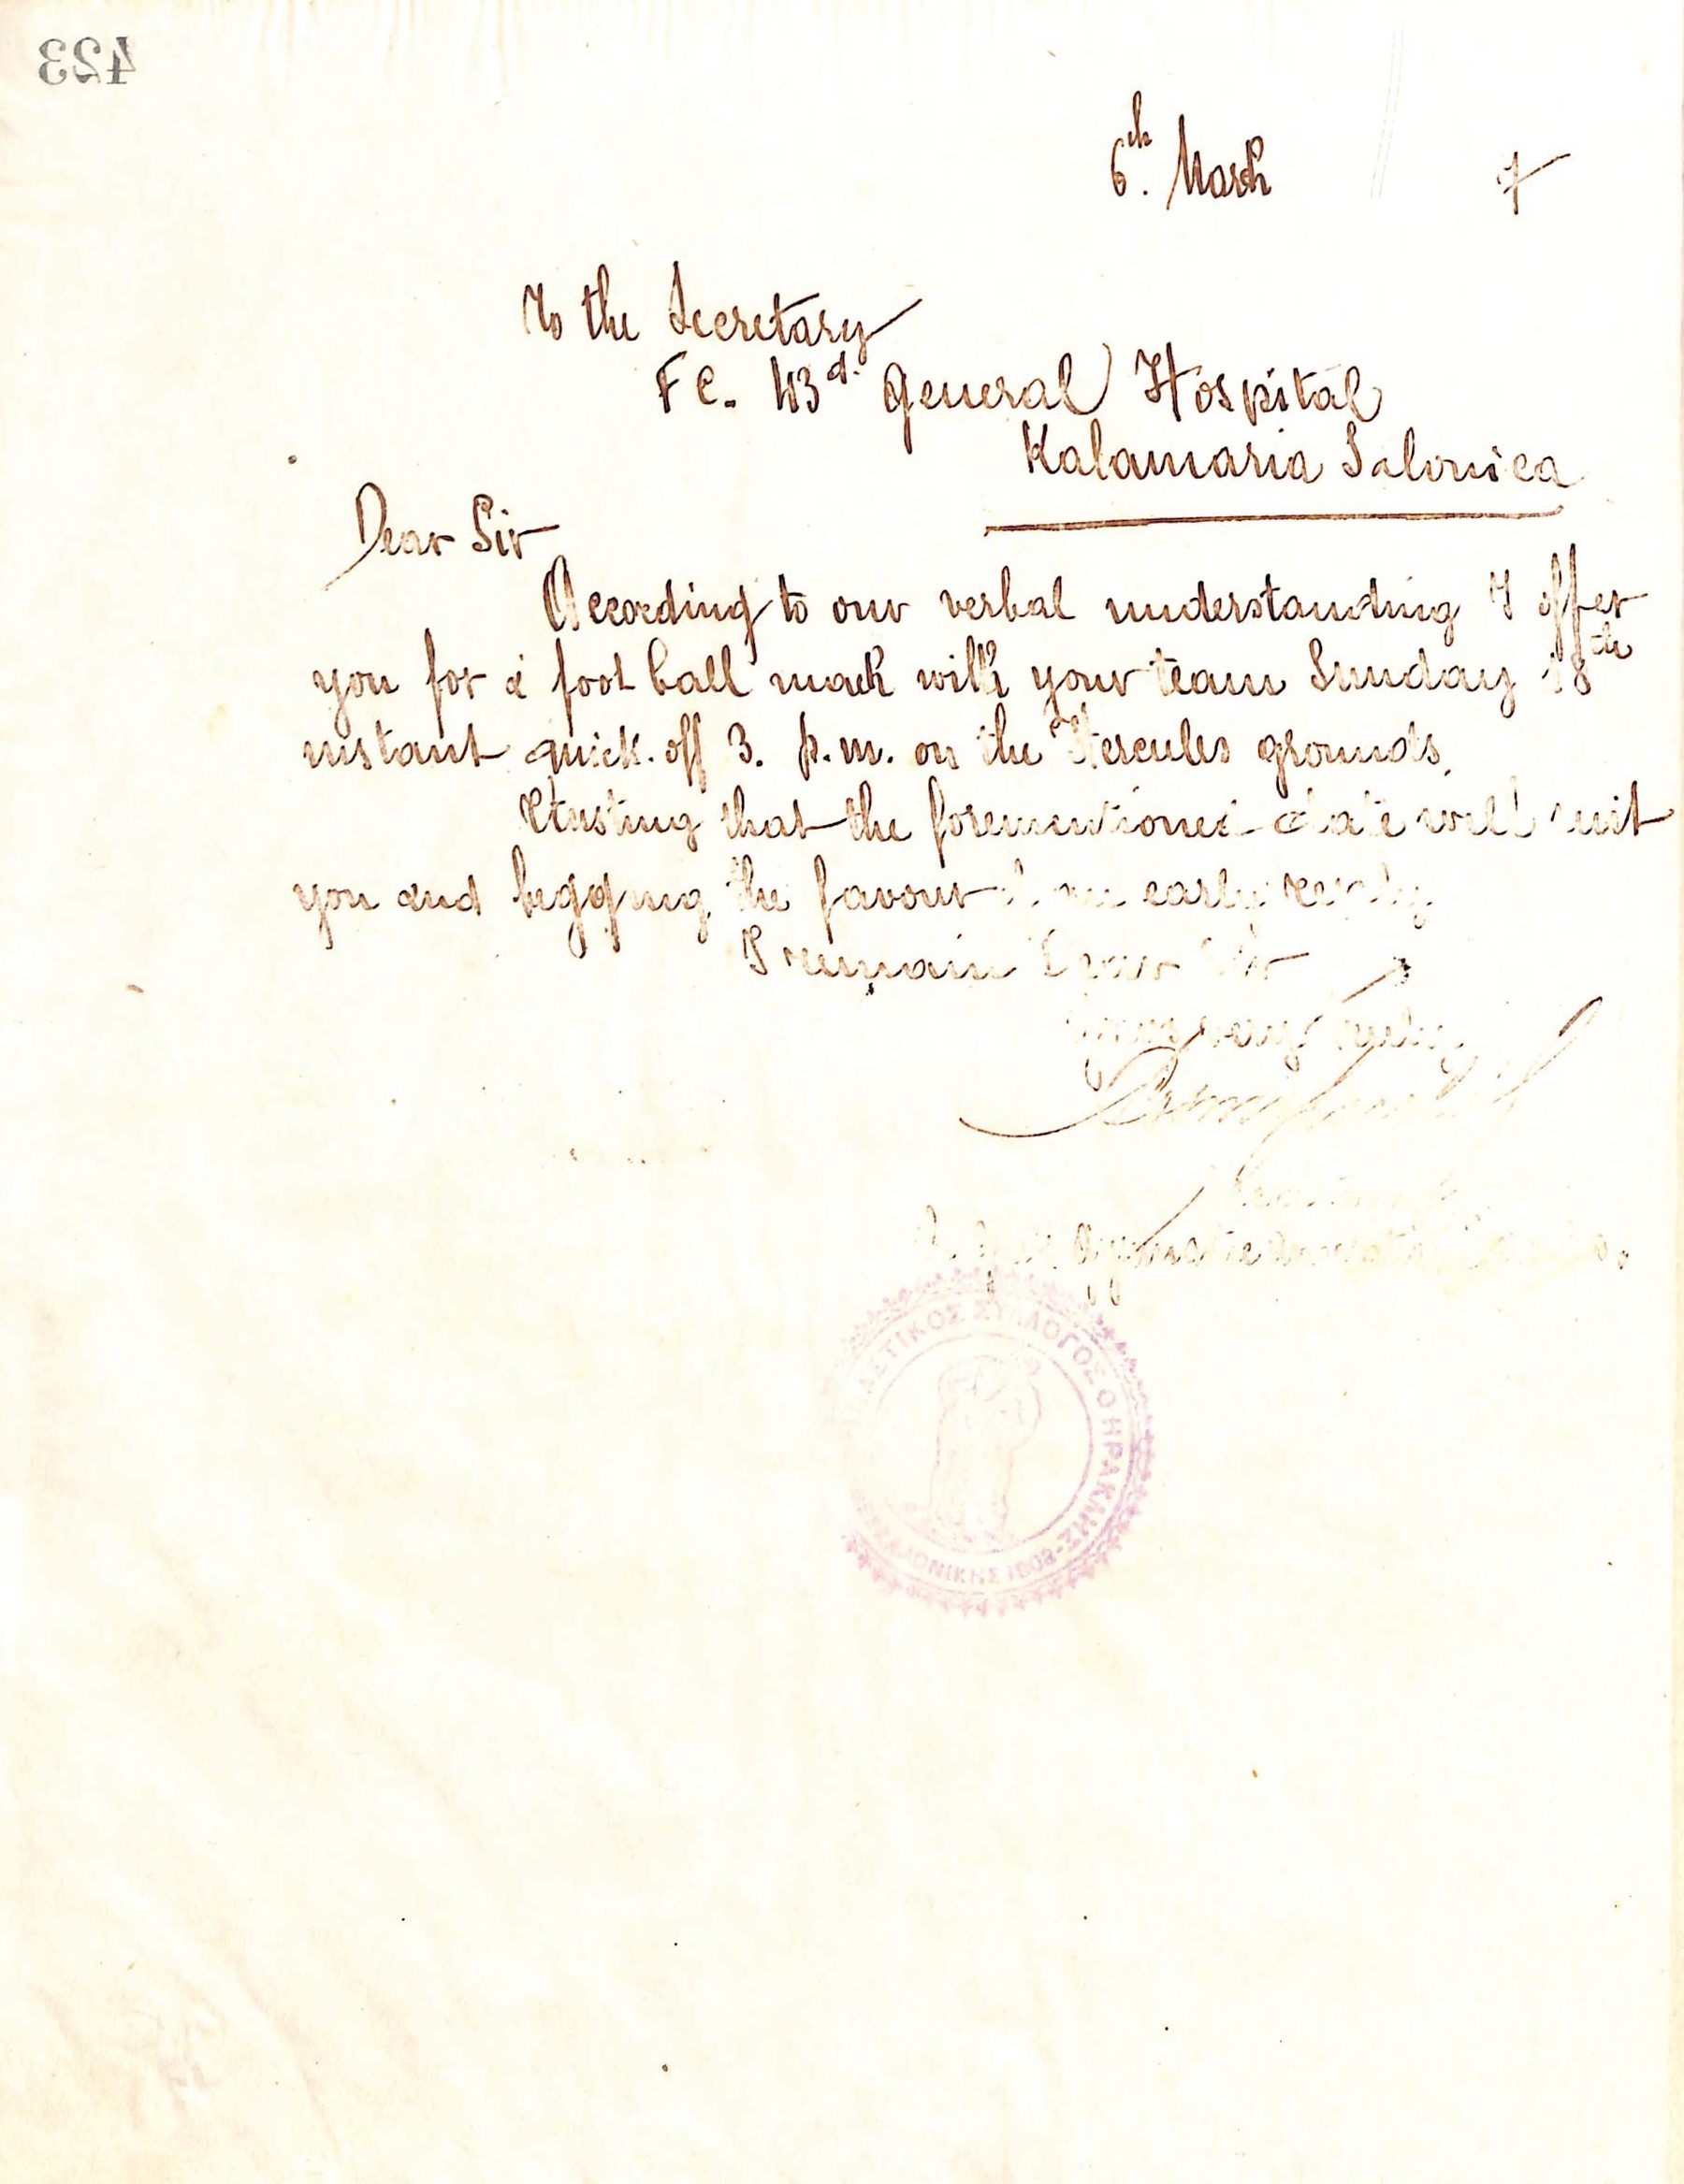 423
6th. March 7
To the Secretary
F C. 43d. General Hospital
Kalamaria Salonica
Dear Sir
According to our verbal understanding I offer
you for a foot ball mach with your team Sunday 18th
instant quick.off 3. p.m. on the Hercules grounds.
trusting that the forementioned date will suit
you and begging the favour early reply
I remain Dear Sir
truly
Gymnastic
ΣΥΛΛΟΓΟΣ Ο ΗΡΑΚΛΗΣ
ΘΕΣΣΑΛΟΝΙΚΗΣ 1908